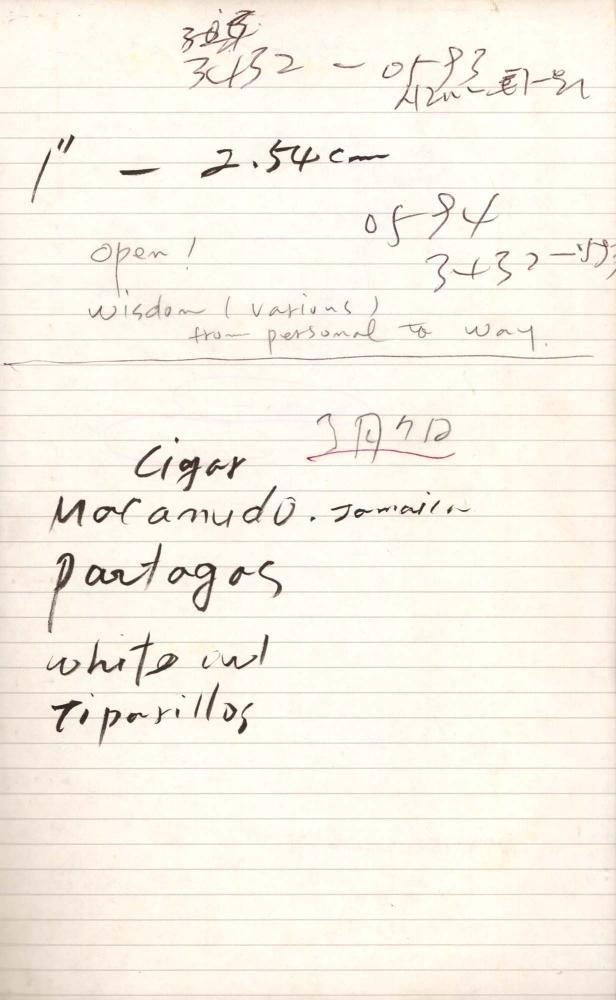 3432 - 0593
1" - 2.54cm
0594
open!
3432-
wisdom (various)
from personal to way.
3月7日
Cigar
Macanudo. Jamaica
Partagas
white owl
Tiparillos